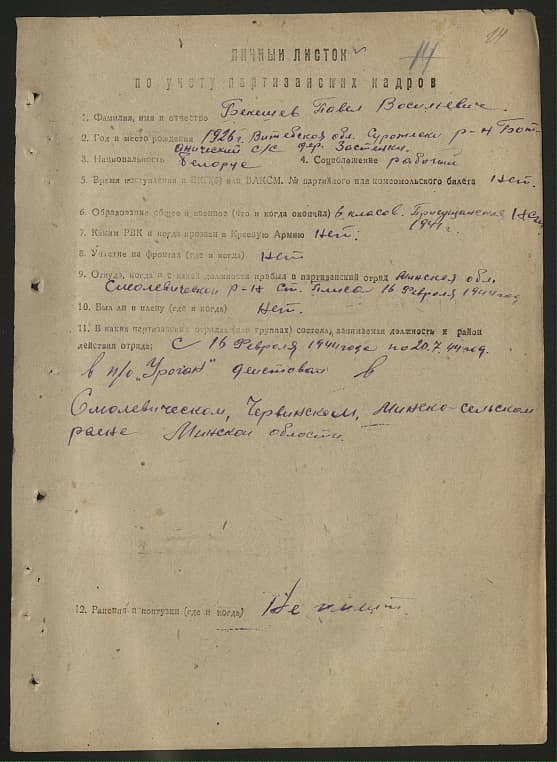 14
14
ЛИЧНЫЙ ЛИСТОК
по учету партизанских кадров
1. Фамилия, имя и отчество Бекешев Павел Васильевич.
2. Год и место рождения 1926 г. Витебская обл. Суражский р-н
с/с дер. Застенки.
3. Национальность белорус 4. Соцположение рабочий
5. Время поступления в ВКП(б) или ВЛКСМ. № партийного или комсомольского билета Нет.
6. Образование общее и военное (что и когда окончил) 6 класов. 1941 г. Нет
7. Каким РВК и когда призван в Красную Армию Нет.
8. Участие на фронтах (где и когда) Нет
9. Откуда, когда и с какой должности прибыл в партизанский отряд Минская обл.
Смолевический р-н ст. Плиса 16 Февроля 1944 год
10. Был ли в плену (где и когда) Нет.
11. В каких партизанских отрядах (или группах) состоял, занимаемая должность и район
действия отряда: с 16 Февроля 1944 года по 20.7.44 год.
в п/о „Уроган" деиствовал в
Смолевическом, Червинском, Минско-сельском
раене Минской области.
12. Ранения и контузии (где и когда) Не имеет.